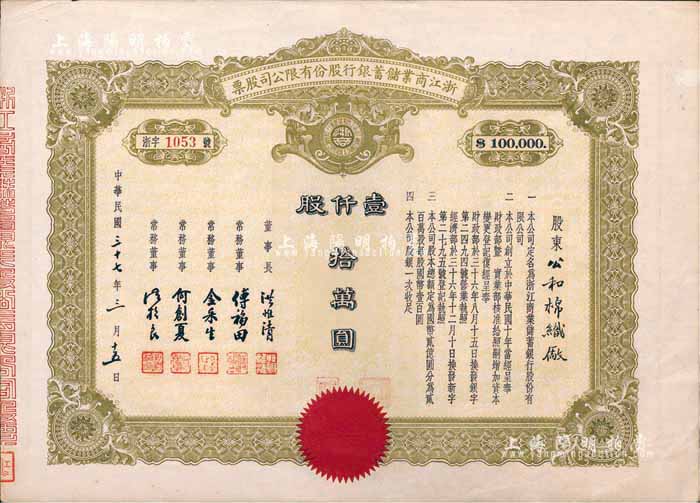 浙江商業儲蓄銀行股份有限公司股票
浙字 1053 號
$ 100,000.
股東 公和棉織廠
一 本公司定名為浙江商業儲蓄銀行股份有
限公司
二 本公司創立於中華民國十年當經呈奉
財政部暨 實業部核准給照嗣增加資本
變更登記復經呈奉
財政部於三十六年八月十五日換發銀字
第二四九四號營業執照
經濟部於三十六年十二月十日換發新字
第二七九五號登記執照
三 本公司股本總額定為國幣貳億圓分為貳
百萬股每股國幣壹百圓
四 本公司股銀一次收足
壹仟股
拾萬圓
董事長 洪惟清
常務董事 傅福田
常務董事 金乐生
常務董事 何創夏
常務董事
中華民國三十七年三月十五日
上海陽明拍賣
上海陽明拍賣
上海陽明拍賣
www.yangmingauction.com